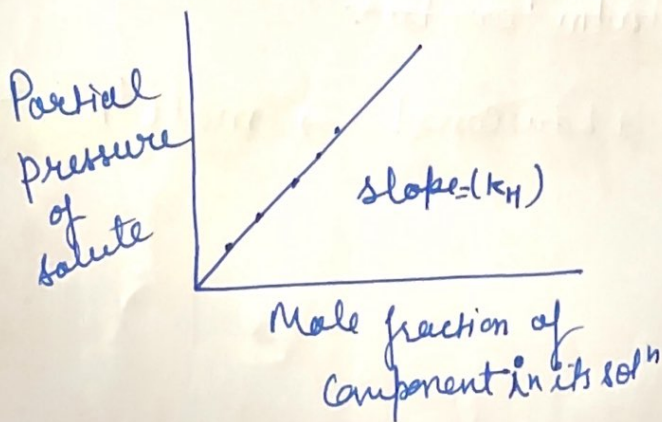 Partial
pressure
of
solute
slope=(KH)
Mole fraction of
Component in its solⁿ